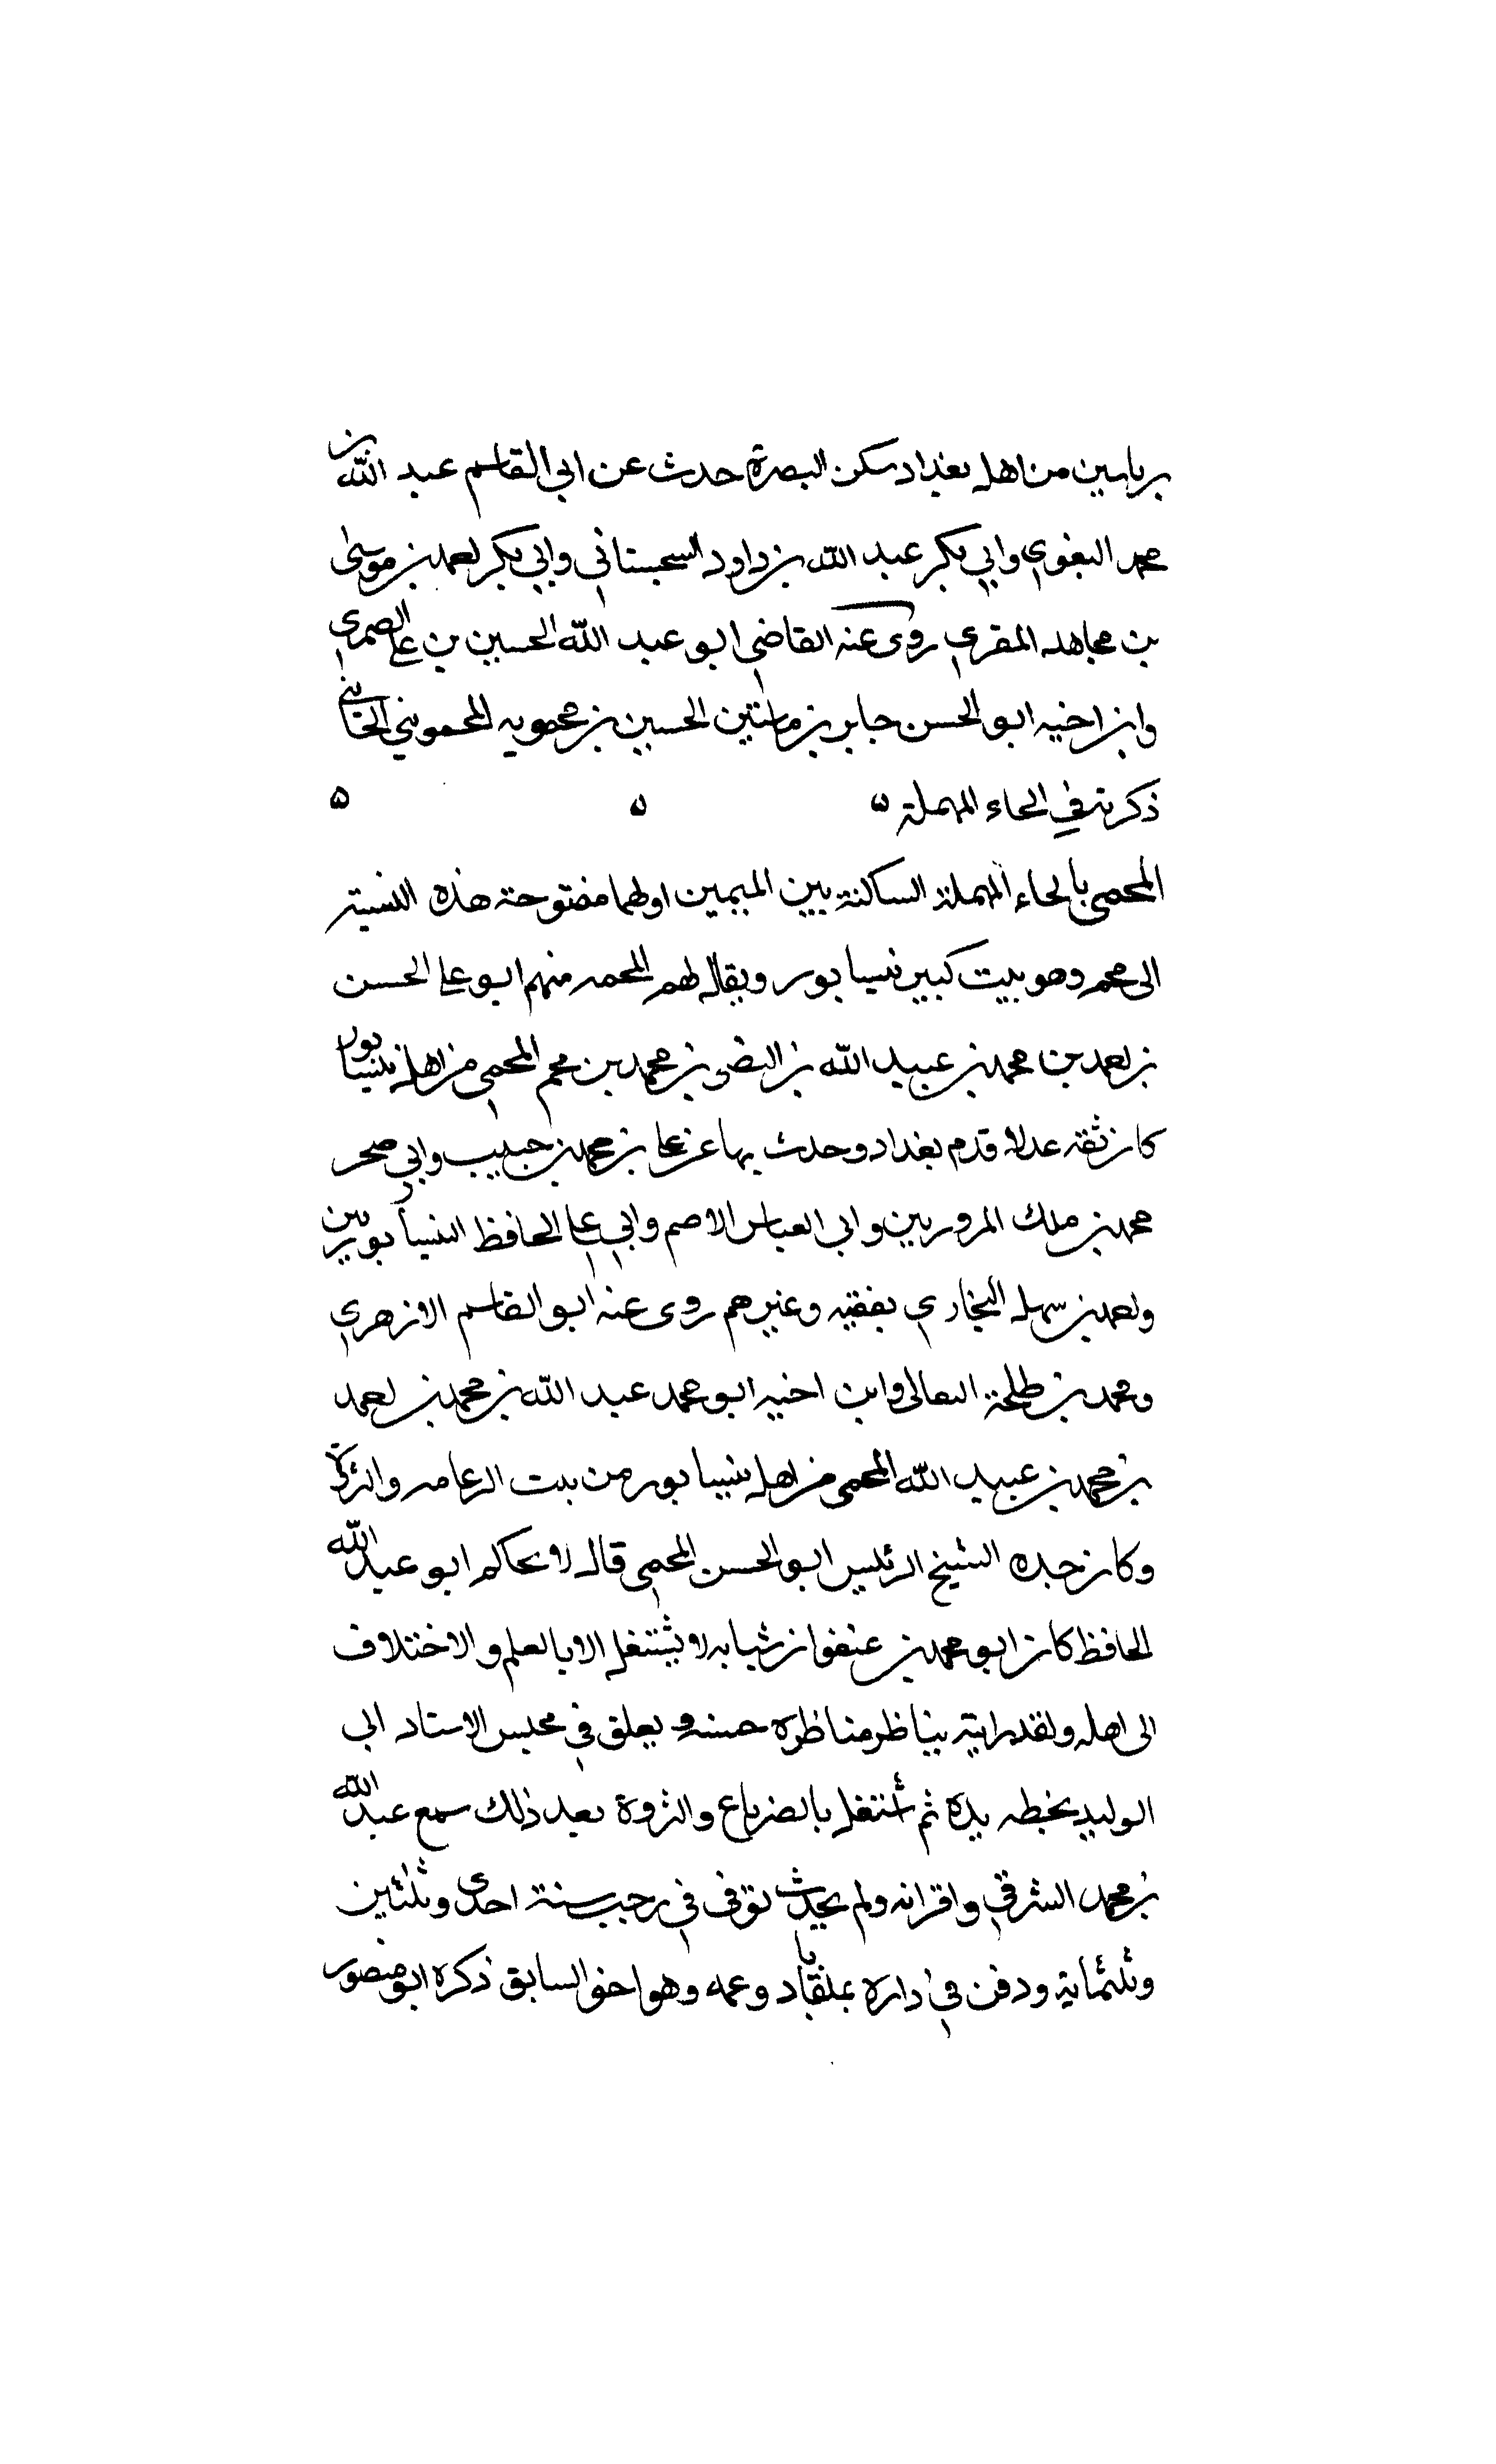 بن ياسين من اهل بغداد سكن البصرة حدث عن ابي القاسم عبد الله بن
محمد البغوي وابي بكر عبد الله بن داود السجستاني وابي بكر احمد بن موسى
بن مجاهد المقري روى عنه القاضي ابو عبد الله الحسين بن علي الصمري
وابن اخيه ابو الحسن جابر بن ياسين الحسين بن محمويه المحمويني الحنائي
ذكرته في الحاء المهملة ه ه ه
المحمي بالحاء المهملة الساكنة بين الميمين اولهما مفتوحة هذه النسبة
الى محم وهو بيت كبير نيسابور ويقال لهم المحمه منهم ابو علي الحسن
بن احمد بن محمد بن عبيد الله بن النضر بن محمد بن محم المحمي من اهل نيسابور
كان ثقة عدلا قدم بغداد وحدث بها عن علي بن محمد بن حبيب وابي صخر
محمد بن ملك المروريين وابي العباس الاصم وابي علي الحافظ النيسابوريين
واحمد بن سهل البخاري بفقيه وغيرهم روى عنه ابو القاسم الازهري
ومحمد بن طلحة النعالي وابن اخيه ابو محمد عبد الله بن محمد بن احمد
بن محمد بن عبيد الله المحمي من اهل نيسابور من بيت الزعامه والتزكية
وكان جده الشيخ الرئيس ابو الحسن المحمي قال الحاكم ابو عبد الله
الحافظ كان ابو محمد بن عنفوان شبابه لا يشتغل الا بالعلم والاختلاف
الى اهله ولقد رايته يناظر مناظرة حسنة و يعلق في مجلس الاستاد ابي
الوليد بخطه يده ثم اشتغل بالضياع والثروة بعد ذلك سمع عبد الله
بن محمد الشرقي واقرانه ولم يحدث توفي في رجب سنة احدى وثلثين
وثلثماية ودفن في داره بملقاباد وعمه وهو اخو السابق ذكره ابو منصور